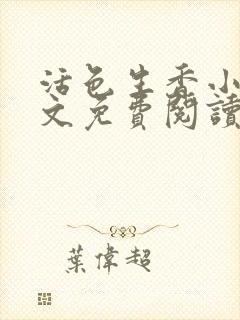 活色生香小
文免費閱讀
葉偉超